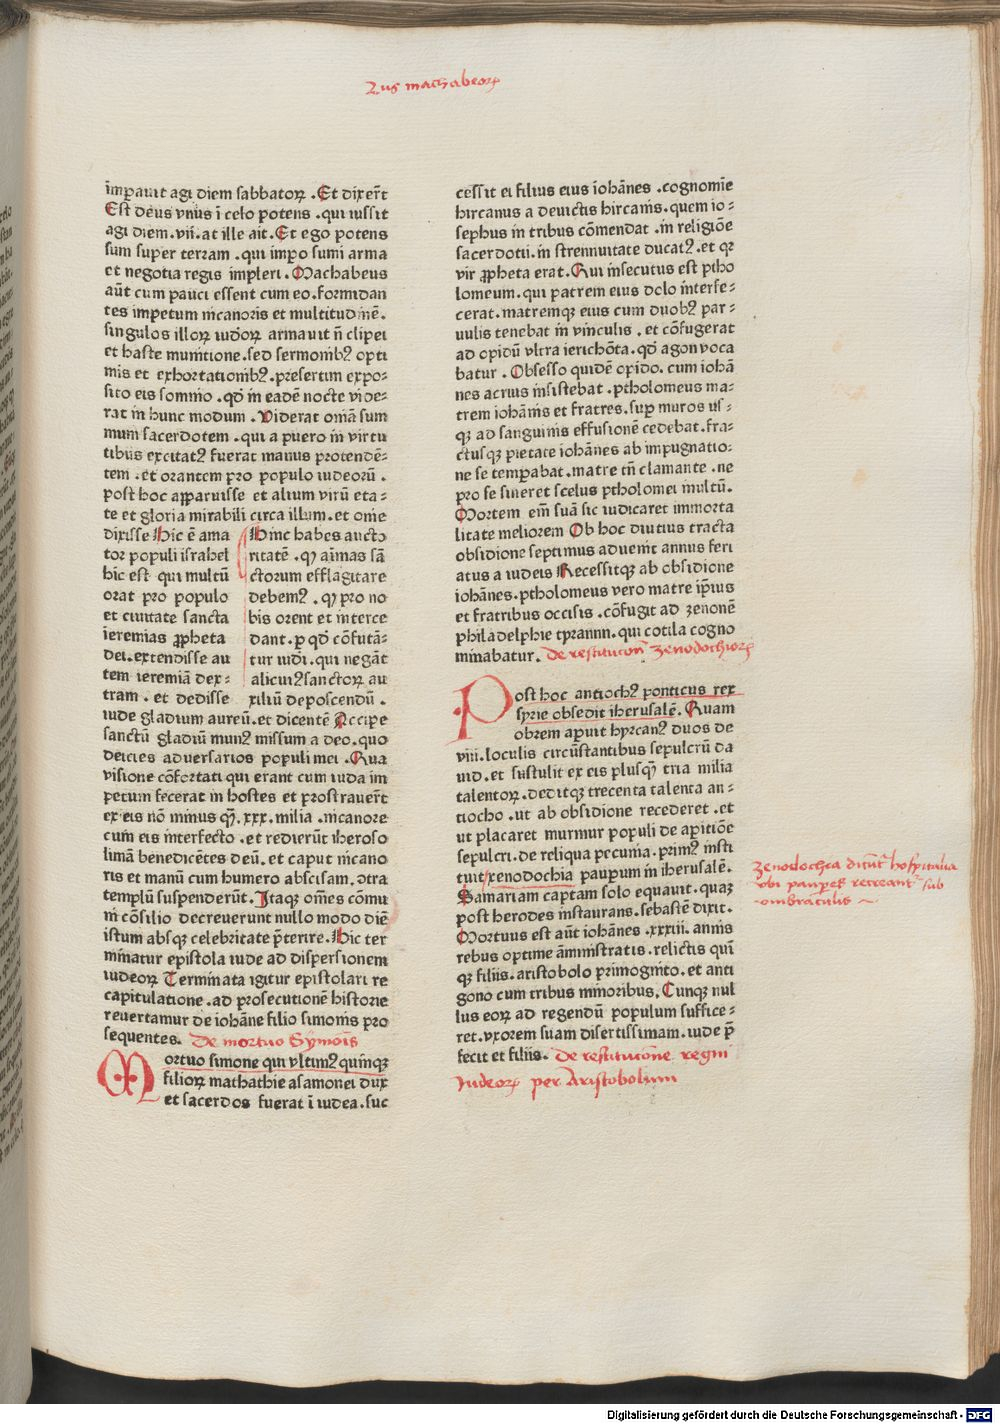 2us machabeoꝝ
īmꝑauit agi diem sabbatoꝝ .Et dixer̄t
Est deus vnus ī celo potens .qui iussit
agi diem .vii. at ille ait. Et ego potens
sum super terram .qui impo sumi arma
et negotia regis impleri. Machabeus
aūt cum pauci essent cum eo. formidan
tes impetum nicanoris et multitudinē.
singulos illoꝝ iudoꝝ armauit n̄ clipei
et haste munitione .sed sermonibꝰ opti
mis et exhortationibꝰ. presertim expo⸗
sito eis somnio .qd̄ in eadē nocte vide⸗
rat in hunc modum . Viderat oniā sum
mum sacerdotem .qui a puero in virtu
tibus excitatꝰ fuerat manus protendē⸗
tem .et orantem pro populo iudeorū .
post hoc apparuisse et alium virū eta⸗
te et gloria mirabili circa illum. et onie
dixisse Hic ē ama
tor populi israhel
hic est qui multū
orat pro populo
et ciuitate sancta
ieremias ꝓpheta
dei. extendisse au
tem ieremiā dex⸗
tram . et dedisse
Hinc habes aucto
ritatē .ꝙ aīmas sā
ctorum efflagitare
debemꝰ .ꝙ pro no
bis orent et interce
dant. ꝑ qd̄ cōfutā⸗
tur iudi .qui negāt
alicuiꝰ sanctoꝝ au
xiliū deposcendū .
iude gladium aureū. et dicentē Accipe
sanctū gladiū munꝰ missum a deo. quo
deicies aduersarios populi mei .Qua
visione cōfortati qui erant cum iuda im
petum fecerāt in hostes et prostrauer̄t
ex eis nō minus qꝫ .xxx. milia .nicanore
cum eis interfecto .et redierūt iheroso
limā benedicētes deū. et caput nicano
ris et manū cum humero abscisam .ↄtra
templū suspenderūt. Itaqꝫ om̄es cōmu
ni cōsilio decreuerunt nullo modo diē
istum absqꝫ celebritate p̄terire. Hic ter
minatur epistola iude ad dispersionem
iudeoꝝ Terminata igitur epistolari re
capitulatione .ad prosecutionē historie
reuertamur de iohāne filio simonis pro
sequentes. De mortuo Symōis
Mortuo simone qui vltimꝰ quinqꝫ
filioꝝ mathathie asamonei dux
et sacerdos fuerat ī iudea. suc
cessit ei filius eius iohānes .cognomīe
hircanus a deuictis hircanis. quem io⸗
sephus in tribus cōmendat .in religiōe
sacerdotii. in strennuitate ducatꝰ .et qꝛ
vir ꝓpheta erat. Qui insecutus est ptho
lomeum. qui patrem eius dolo interfe⸗
cerat. matremqꝫ eius cum duobꝰ par⸗
uulis tenebat in vinculis . et cōfugerat
ad opidū vltra ierichōta. qd̄ agon voca
batur . Obsesso quidē opido. cum iohā
nes acrius insistebat .ptholomeus ma⸗
trem iohānis et fratres. suꝑ muros vs⸗
qꝫ ad sanguinis effusionē cedebat. fra⸗
ctusqꝫ pietate iohānes ab impugnatio⸗
ne se temꝑabat. matre tn̄ clamante .ne
pro se sineret scelus ptholomei multū.
Mortem em̄ suā sic iudicaret immorta
litate meliorem Ob hoc diutius tracta
obsidione septimus aduenit annus feri
atus a iudeis Recessitqꝫ ab obsidione
iohānes. ptholomeus vero matre ip̄ius
et fratribus occisis .cōfugit ad zenonē
philadelphie tyrānn. qui cotila cogno
minabatur. De restitucōn̄ zenodochioꝝ
Post hoc antiochꝰ ponticus rex
syrie obsedit iherusalē. Quam
obrem aꝑuit hyrcanꝰ duos de
viii. loculis circūstantibus sepulcrū da
uid .et sustulit ex eis plusqꝫ tria milia
talentoꝝ. deditqꝫ trecenta talenta an⸗
tiocho .ut ab obsidione recederet .et
ut placaret murmur populi de aꝑitiōe
sepulcri. de reliqua pecunia. primꝰ insti
tuit xenodochia paupum in iherusalē.
Samariam captam solo equauit. quaꝫ
post herodes instaurans. sebastē dixit.
Mortuus est aūt iohānes .xxxiii. annis
rebus optime āministratis. relictis quī
qꝫ filiis. aristobolo primogenito. et anti
gono cum tribus minoribus. Cunqꝫ nul
lus eoꝝ ad regendū populum suffice⸗
ret. vxorem suam disertissimam. iude p̄
fecit et filiis. De restitucōne regni
Iudeoꝝ per Aristobolum
zenodochea dicūtʳ hospitalia
vbi pauꝑes recreantʳ sub
ombraculis ~
Digitalisierung gefördert durch die Deutsche Forschungsgemeinschaft - DFG